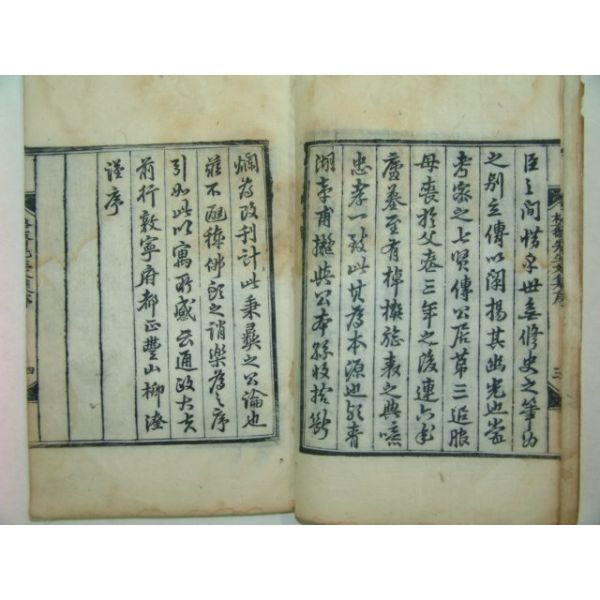 臣之間惜乎世無修史之筆為
之別立傳以闡揚其幽光也嘗
考密之七賢傳公居第三追服
母喪於父喪三年之後連六年
廬墓至有棹楔旌表之典噫
忠孝一致此其為本源也後
湖李甫擬與公本孫收拾
爛為改刊計此秉彝之公論也
雖不醜穢佛頭之誚樂為之序
引如此以寓所感云通政大夫
前行敦寧府都正豐山柳
謹序